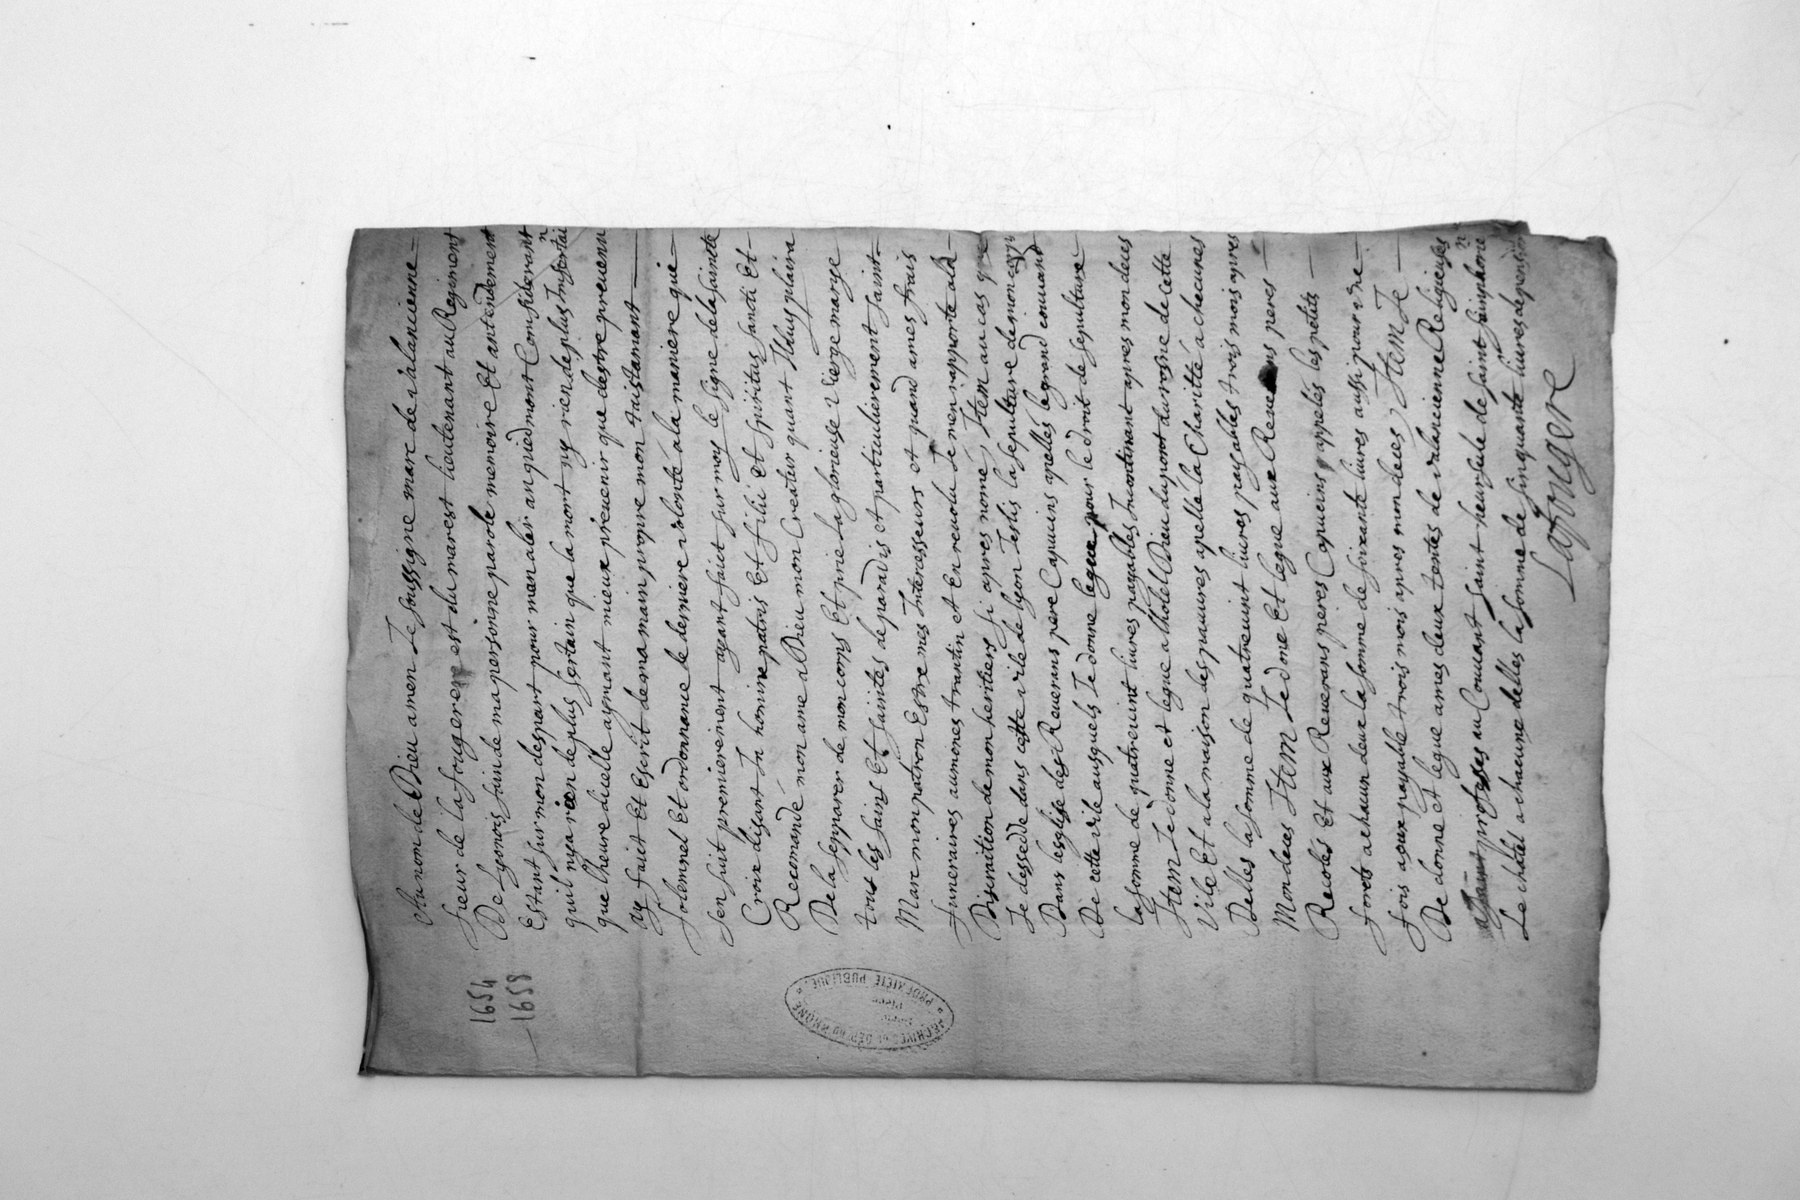 Au nom de Dieu amen Je soussigne marc de valancienne
sieur de la fougere est du marest lieutenant au Regiment
De lyonois sain de ma personne parole memoire Et antendement
Estant sur mon despart pour men aler an quedmont Considerant
quil nya rien de plus sertain que la mort ny rien de plus Insertai
n
que lheure dicelle aymant mieux prevenir que destre prevenu
ay fait Et Escrit de ma main propre mon taistamant
solemnel Et ordonnance de derniere volonté a la maniere que
sen suit premierement ayant fait sur moy le signe de la sainte
Croix disant In nomine patris Et filii Et spiritus sancti Et
Recomandé mon ame a Dieu mon Createur quant Il luy plaira
De la sepparer de mon corps Et prie la glorieuse vierge marye
tous les sains Et saintes de paradis et particulierement saint
Marc mon patron Estre mes Intercesseurs et quand a mes frais
funeraires aumones trantin et En revolu Je men rapporte a la
Discraition de mon heritiers si apres nomé, Item au cas que
Je dessedde dans cette vile de lyon Jeslis la sepulture de mon corps
Dans lesglise des Reverans pere Capuins apelles le grand couvand
De cette vile ausquels Je donne legue pour le droit de sepulture
la somme de quatrevint livres payables Incontinant apres mon deces
Item Je donne et legue a lhotel Dieu du pont du rosne de cette
Vile Et a la maison des pauvres apelle la Charitté a checunes
Delles la somme de quatrevint livres payables trois mois apres
Mon deces Item Je done Et legue aux Reverans peres
Recolés Et aux Reverans peres Capucins appelés les petits
forets a chacun deux la somme de soixante livres aussi pour une
fois a eux payable trois mois apres mon deces, Item Je
De donne Et legue a mes deux tentes de valancienne Religieuses
professes au Couvant saint heursule de saint simphorie
n
Le chatel a chacune delles la somme de sinquante livres de pention
Lafougere
1654
1658
ARCHIVES DU DEP. DU RHONE
PROPRIÉTÉ PUBLIQUE